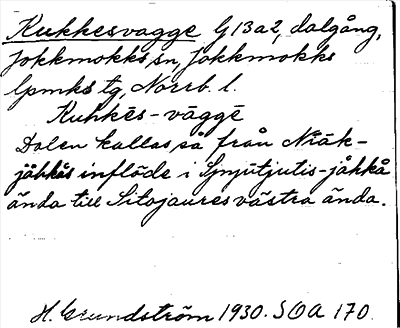 Kukkesvagge G13a2, dalgång,
Jokkmokks sn, Jokkmokks
lpmks tg, Norrb. l.
Kuhkēs-văggē
Dalen kallas så från Niăk-
jåhkås inflöde i Sjnjūtjutis-jåhkå
ända till Sitojaures västra ända.
H. Grundström 1930. SOA 170.